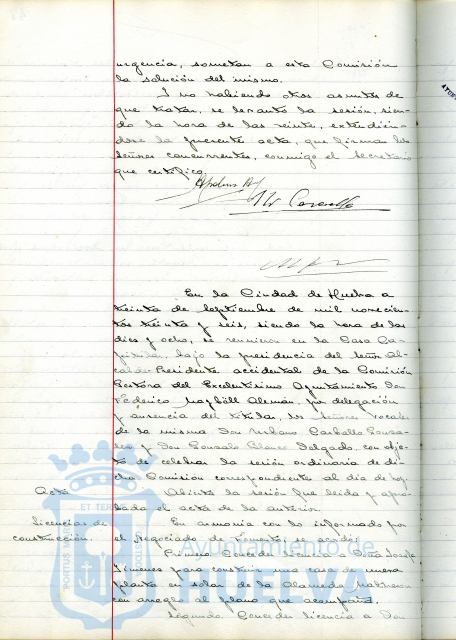 urgencia, sometan a esta Comisión
la solución del mismo.
Y no habiendo otros asuntos de
que tratar, se levantó la sesión, sien-
do la hora de las veinte, extendién-
dose la presente acta, que firman los
señores concurrentes, conmigo el secretario
que certifico.
En la Ciudad de Huelva a
treinta de Septiembre de mil novecien-
tos treinta y seis, siendo la hora de las
diez y ocho, se reunieron en la Casa Ca-
pitular, bajo la presidencia del señor Al-
calde Presidente accidental de la Comisión
Gestora del Excelentísimo Ayuntamiento Don
Federico Alemán, por delegación
y ausencia del titular, los señores vocales
de la misma Don Urbano Carballo
y Don Gonzalo Blanco Delgado, con obje-
to de celebrar la sesión ordinaria de di-
cha Comisión correspondiente al día de hoy.
Acta Abierta la sesión fue leída y apro-
bada el acta de la anterior.
Licencias de En armonía con lo informado por
construcción. el Negociado de Fomento, se acordó:
Primero. Conceder licencia a Doña Josefa
Jimenez para construir una casa de nueva
planta en solar de la Alameda
con arreglo al plano que acompaña.
Segundo. Conceder licencia a Don
Ayuntamiento de
HUELVA